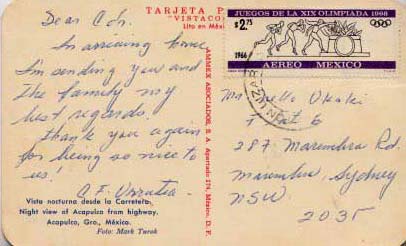 TARJETA P
"VISTACO
Lito en Méxi
Dear
In arriving home
I'm sending you and
the family my
best regards.
thank you again
for being so nice to
us!
Vista nocturna desde la Carretera.
Night view of Acapulco from highway.
Acapulco, Gro., México.
Foto: Mark Turok
AMMEX ASOCIADOS, S. A. Apartado 174, México, D. F.
JUEGOS DE LA XIX OLIMPIADA 1968
$2.75
1966
AEREO MEXICO
Flat 6
287 Maroubra Rd.
Maroubra, Sydney
NSW
2035